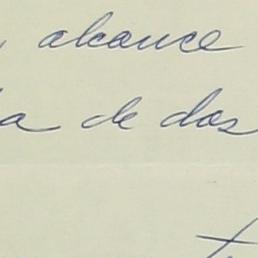 , alcance
a de dos